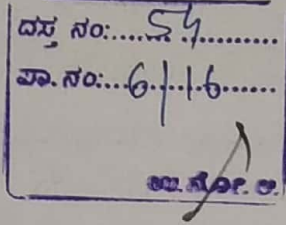 ದಸ್ತ ನಂ:.....54..........
ಪಾ. ನಂ:...6/16.......
ಉ. ನೋ. ಅ.